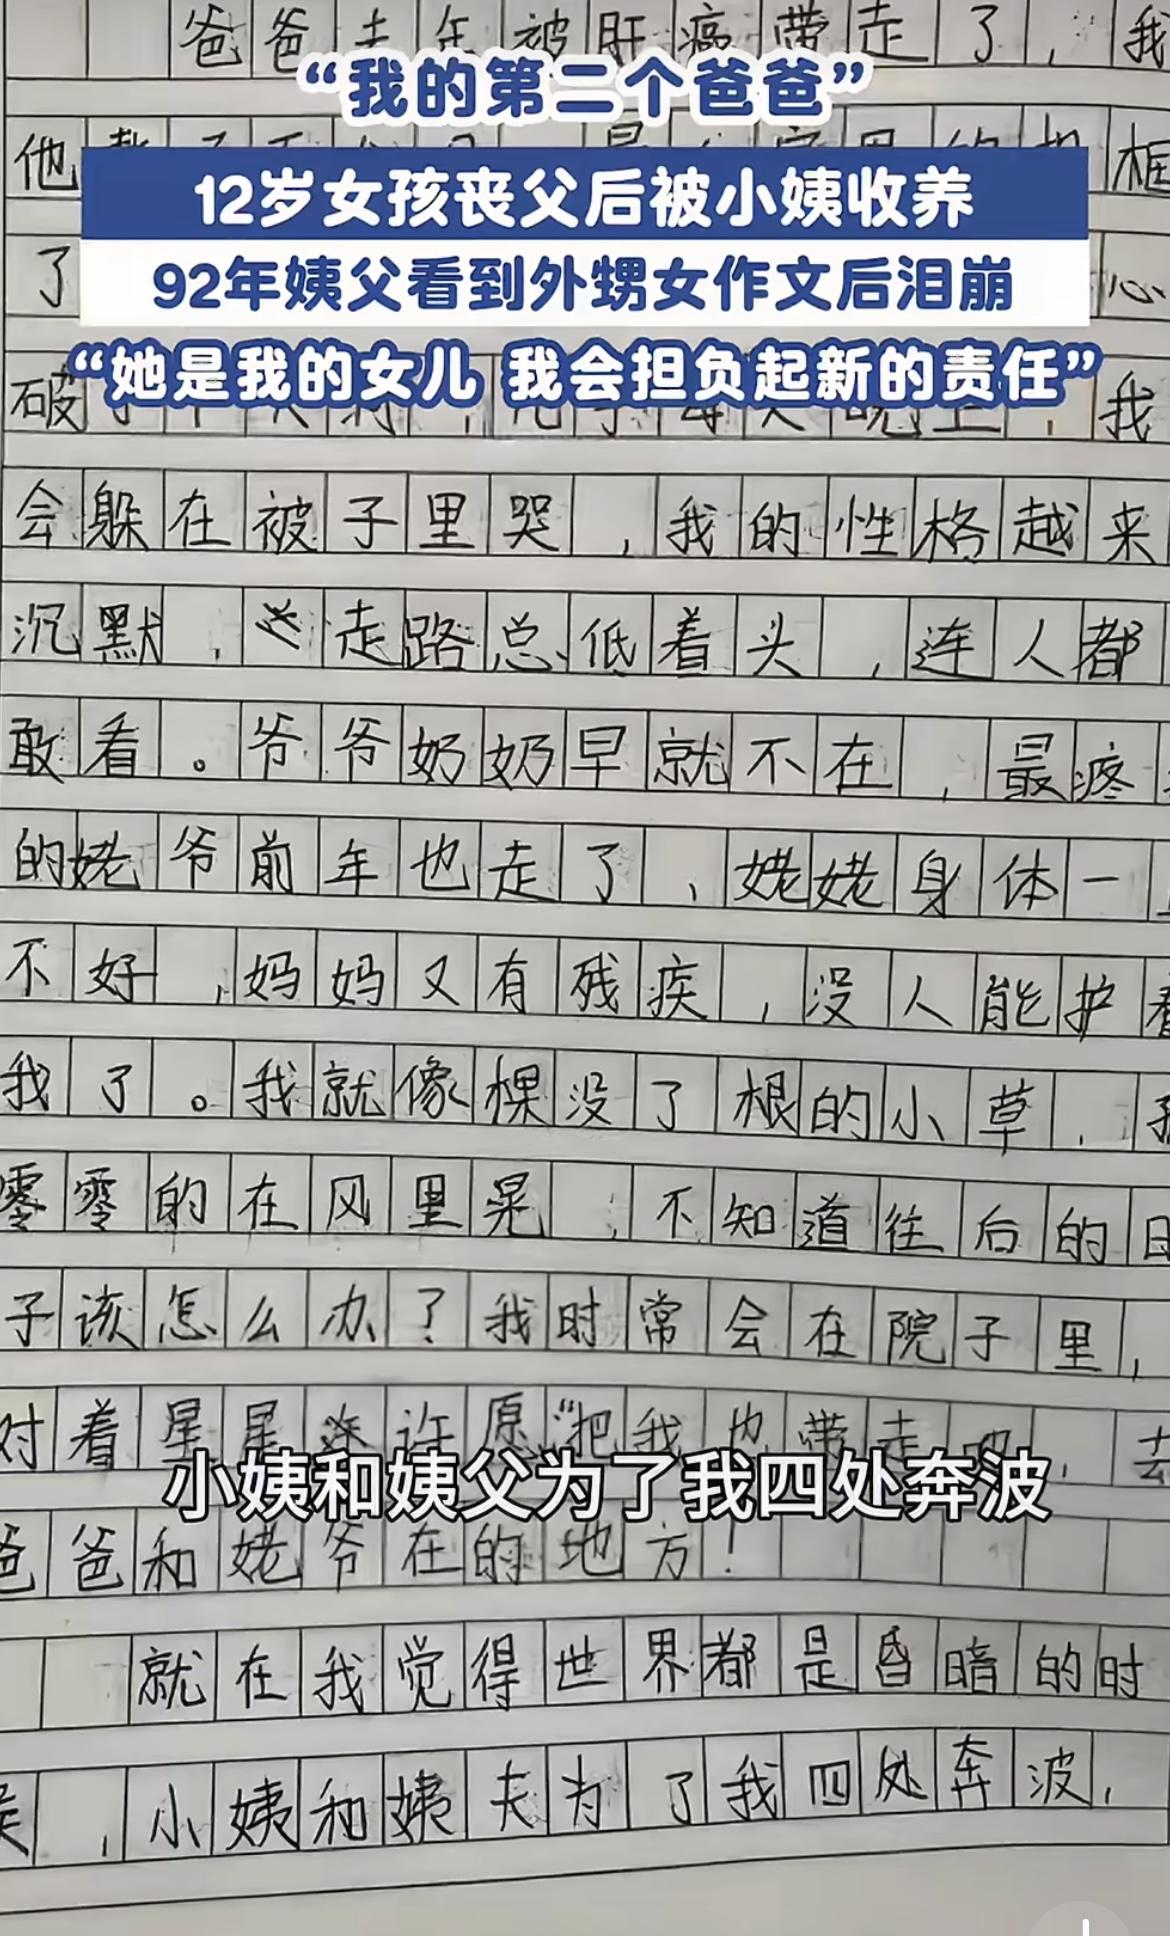 爸爸去年被肝癌带走了，我
“我的第二个爸爸”
他
框
12岁女孩丧父后被小姨收养
92年姨父看到外甥女作文后泪崩
了
心
“她是我的女儿 我会担负起新的责任”
破
我
会躲在被子里哭，我的性格越来
沉默，走路总低着头，连人都
敢看。爷爷奶奶早就不在，最疼
的姥爷前年也走了，姥姥身体一
不好，妈妈又有残疾，没人能护着
我了。我就像棵没了根的小草，孤
零零的在风里晃，不知道往后的日
子该怎么办？我时常会在院子里，
对着星星许愿“把我也带走吧，去
小姨和姨父为了我四处奔波
爸爸和姥爷在的地方！
就在我觉得世界都是昏暗的时
候，小姨和姨夫为了我四处奔波，